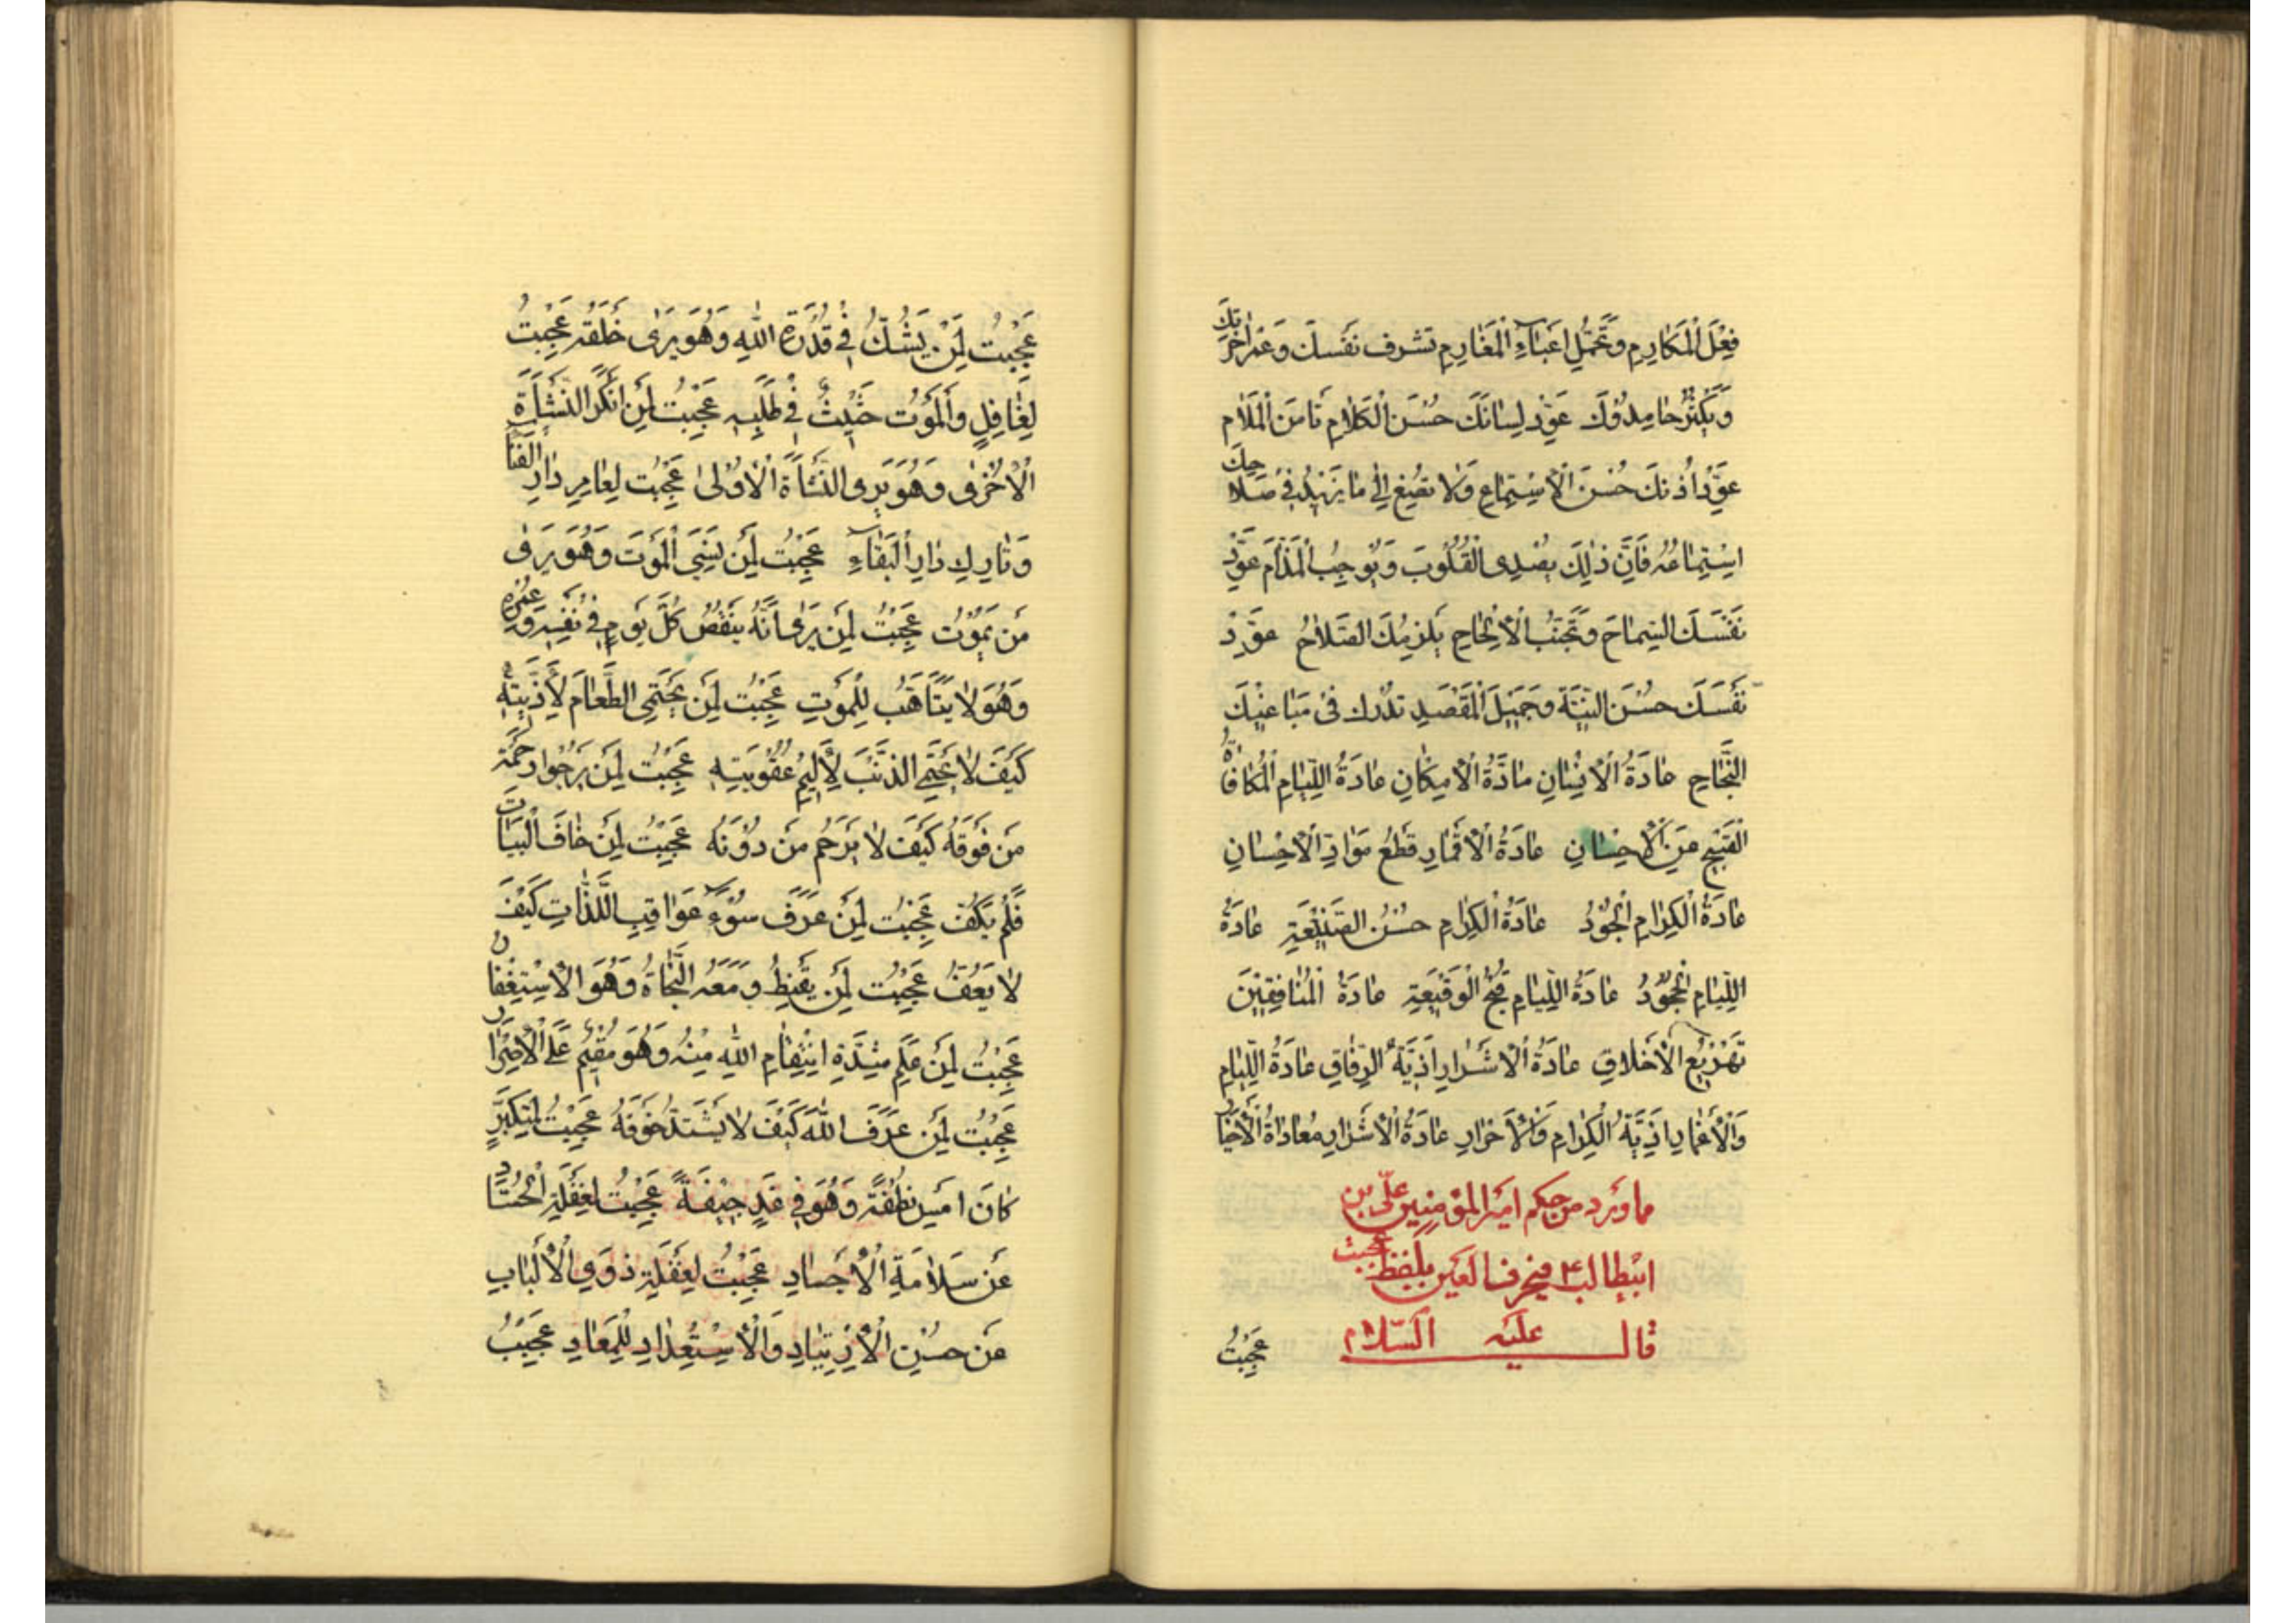 فِعْلَ الْمَكَارِمِ وَتَحَمُّلِ اَعْبَاءِ الْمَغَارِمِ تشرف نَفْسكَ وَعْمُرْ اخِرَتِكَ
وَيَكْثُرْ حَامِدُوْكَ عَوِّدْ لِسَانَكَ حُسْنَ الْكَلَامِ تَامَنِ الْمَلَام
عَوِّدْ اُذُنَكَ حُسْنَ الْاِسْتِمَاعِ وَلَا تصْغِ اِلٰى مَا يَزِيْدُ فِىْ صَلَاحِكَ
اِسْتِمَاعُه فَاِنَّ ذٰلِكَ يصْدِى الْقُلُوْبَ وَيُوْجِبُ الْمَذَامَّ عَوِّدْ
نَفْسَكَ السِّمَاحَ وَتَجَنُّبَ الْاِلْحَاحِ يَلْزَمْكَ الصَّلَاحُ عَوِّدْ
نَفْسَكَ حُسْنَ النِّيَّةِ وَجَمِيْلَ الْمَقْصَدِ تدْرك فِىْ مَبَاغِيْكَ
النَّجَاح عَادَةُ الْاِحْسَانِ مَادَّةُ الْاِمْكَانِ عَادَةُ اللِّيَامِ الْمُكَافَاةُ
الْقَبِيْحِ عَنِ الْاِحْسَانِ عَادَةُ الْاَغْمَارِ قَطْعُ مَوَادِّ الْاِحْسَانِ
عَادَةُ الْكِرَامِ الْجُوْدُ عَادَةُ الْكِرَامِ حُسْنُ الصَّنِيْعَةِ عَادَةُ
اللِّيَامِ الْجُحُوْدُ عَادَةُ اللِّيَامِ قُبْحُ الْوَقِيْعَةِ عَادَةُ الْمُنَافِقِيْنَ
تَهْزِيْعُ الْاَخْلَاقِ عَادَةُ الْاَشْرَارِ اَذِيَّةُ الرِّفَاقِ عَادَةُ اللِّيَامِ
وَالْاَغْمَارِ اَذِيَّةُ الْكِرَامِ وَالْاَحْرَارِ عَادَةُ الْاَشْرَارِ مُعَادَاةُ الْاَخْيَارِ
ما ورد من حكم امير المؤمنين علي بن
ابيطالب ع في حرف العين بلفظ عجبت
قال عليه السّلام
عَجِبْتُ
عَجِبْتُ لِمَنْ يَشُكُّ فِىْ قُدْرَةِ اللهِ وَهُوَ يَرٰى خَلْقَه عَجِبْتُ
لِغَافِلٍ وَالْمَوْتُ حَثِيْثٌ فِىْ طَلَبِه عَجِبْتُ لِمَنْ اَنْكَرَ النَّشْاَةَ
الْاُخْرٰى وَهُوَ يَرى النَّشْاَةَ الْاُوْلٰى عَجِبْتُ لِعَامِرِ دَارِ الْفَنَا
وَتَارِكِ دَارِ الْبَقَاءِ عَجِبْتُ لِمَنْ نَسِىَ الْمَوْتَ وَهُوَ يَرٰى
مَن يَمُوْتُ عَجِبْتُ لِمَنْ يَرٰى اَنَّهُ يَنْقُصُ كُلَّ يَوْمٍ فِىْ نَفْسِه وَعُمْرِه
وَهُوَ لَا يَتَاَهَّبُ لِلْمَوْتِ عَجِبْتُ لِمَن يَحْتَمِى الطَّعَامَ لِاَذِيَّتِه
كَيْفَ لَا يَحْتَمِى الذَّنْبَ لِاَلِيْمِ عُقُوْبَتِه عَجِبْتُ لِمَن يَرْجُوْا رَحْمَةَ
مَن فَوْقَهُ كَيْفَ لَا يَرْحَم مَن دُوْنَهُ عَجِبْتُ لِمَنْ خَافَ الْبَيَاتَ
فَلَمْ يَكُفَّ عَجِبْتُ لِمَنْ عَرَفَ سُوْءَ عَوَاقِبِ اللَّذَّاتِ كَيْفَ
لَا يَعُفُّ عَجِبْتُ لِمَن يَقْنِطُ وَمَعَهُ النَّجَاةُ وَهُوَ الْاِسْتِغْفَار
عَجِبْتُ لِمَنْ عَلِمَ شِدَّةِ اِنْتِقَامِ اللهِ مِنْهُ وَهُوَ مُقِيْمٌ عَلَى الْاِصْرَار
عَجِبْتُ لِمَنْ عَرَفَ اللهَ كَيْفَ لَا يَشْتَدُّ خَوْفُهُ عَجِبْتُ لِمُتَكَبِّرٍ
كَانَ اَمْسِ نُطْفَةً وَهُوَ فِىْ غَدٍ جِيْفَةٌ عَجِبْتُ لِغَفْلَةِ الْحُسَّادِ
عَنْ سَلَامَةِ الْاَجْسَادِ عَجِبْتُ لِغَفْلَةِ ذَوِى الْاَلْبَابِ
عَن حُسْنِ الْاِرْتِيَادِ وَالْاِسْتِعْدَادِ لِلْمَعَادِ عَجِبْتُ